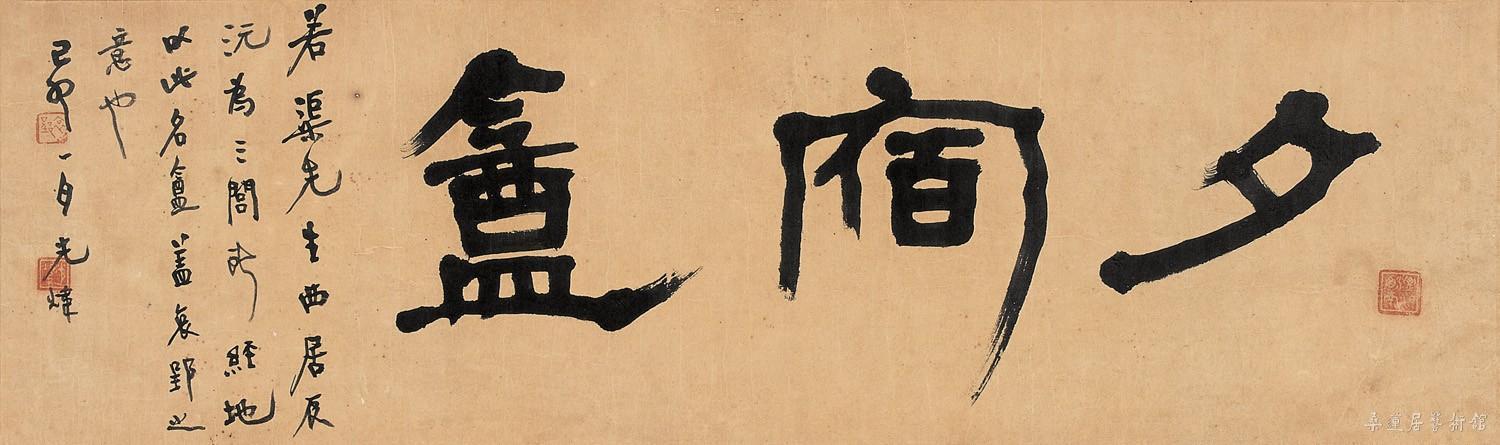 夕宿盦
若渠先生西居辰
沅為三閭所經地
以此名盦蓋哀郢之
意也
己卯一月光煒
桑蓮居藝術館